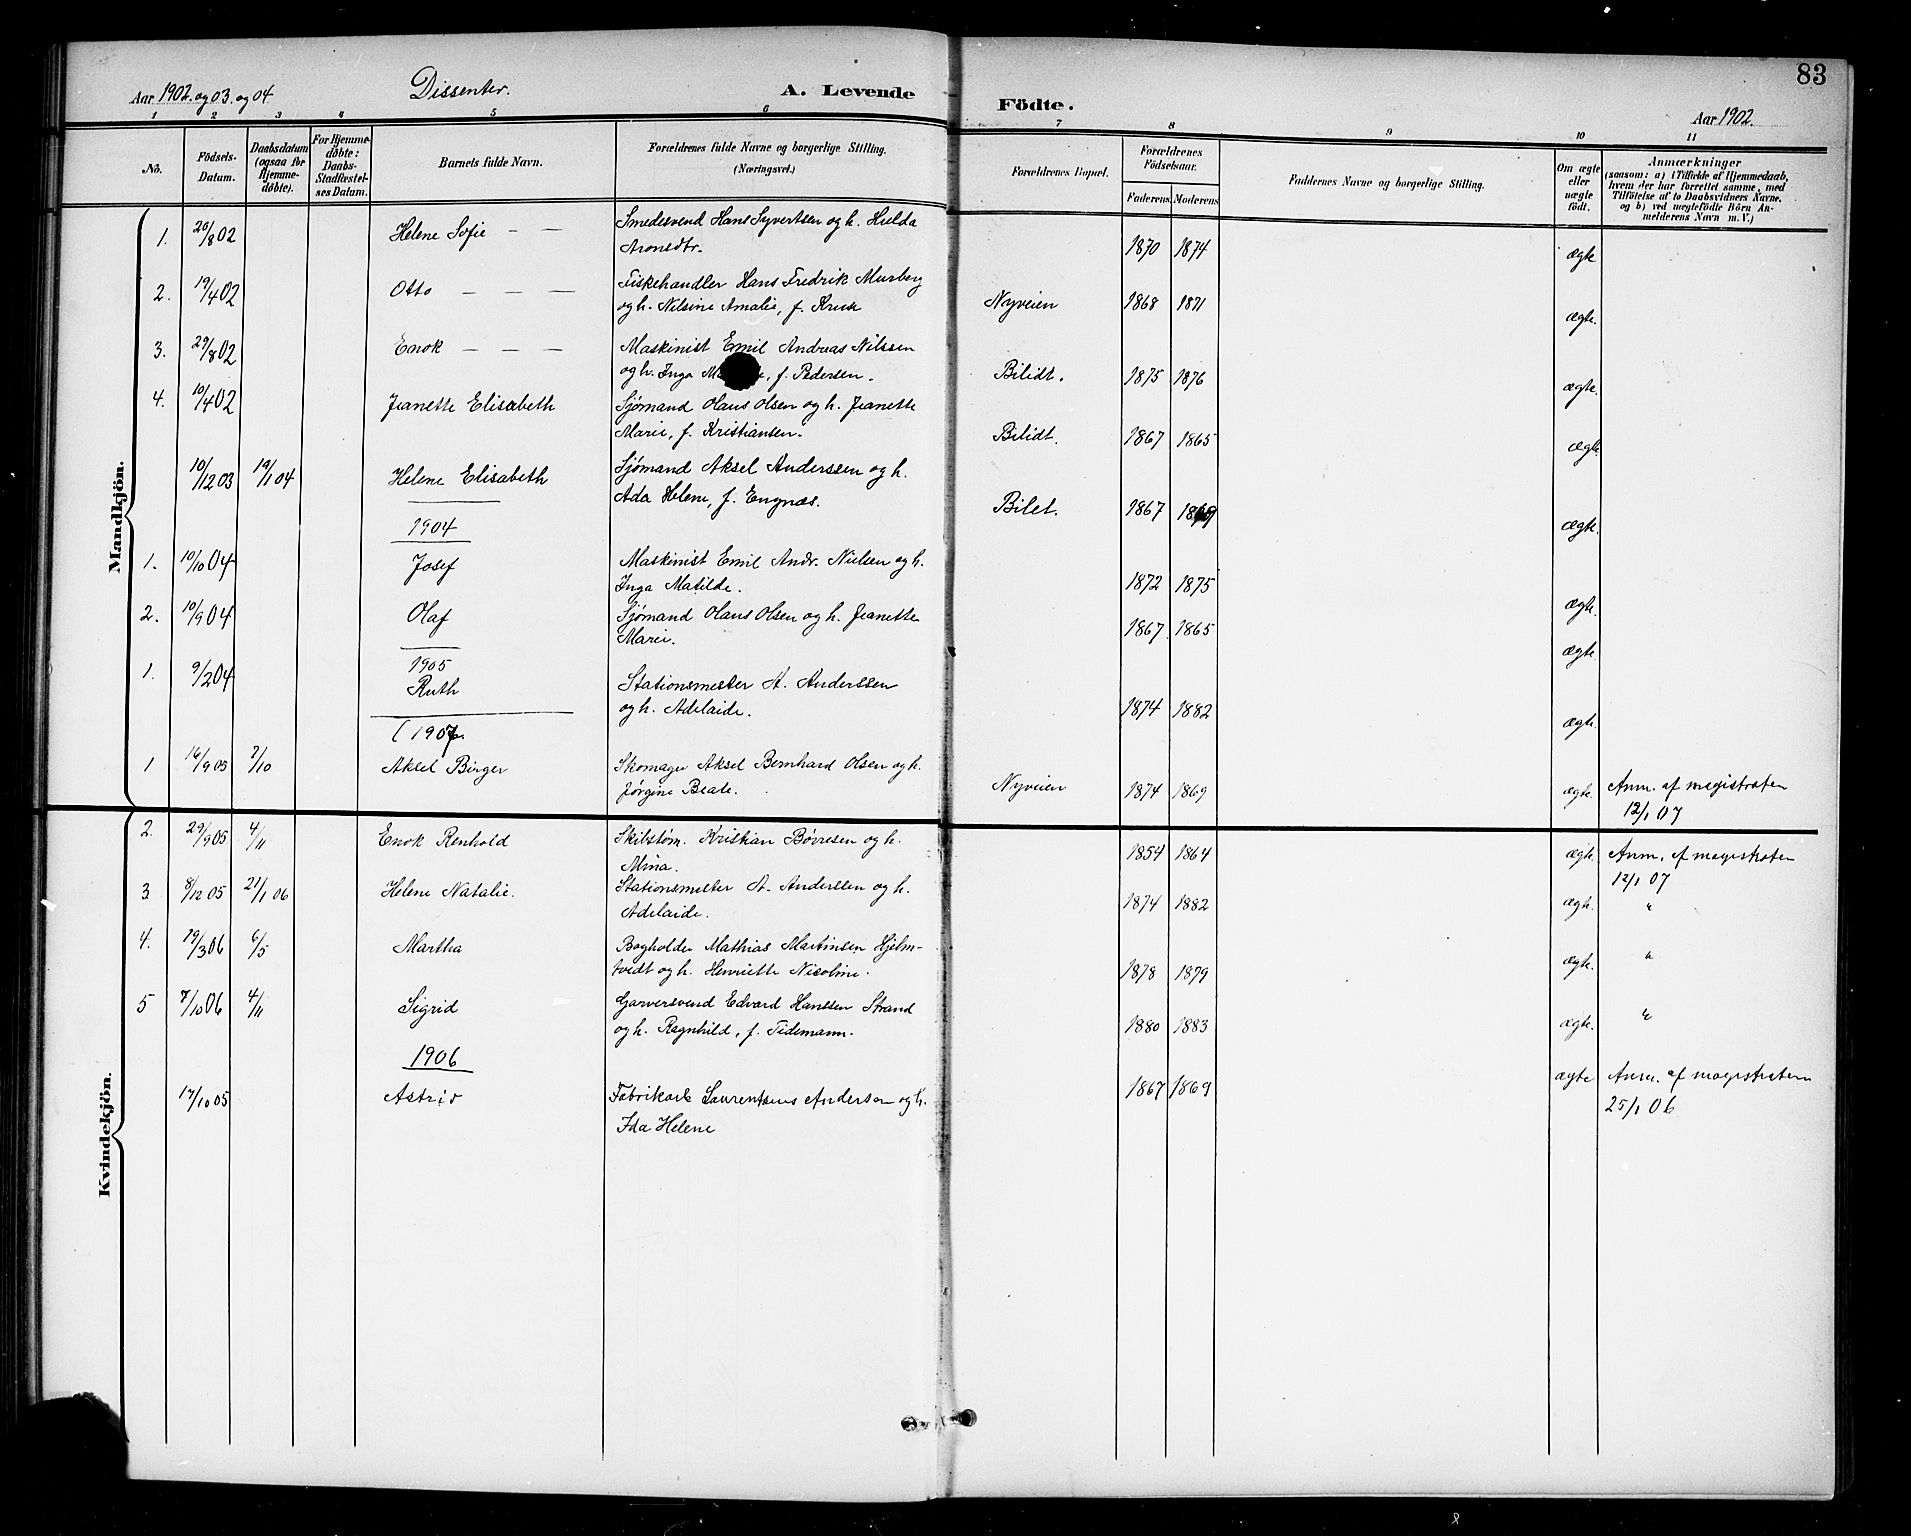 83
Aar 1902. og 03. og 04. Dissenter. A. Levende Födte. Aar 1902.
1 2 3 4 5 6 7 8 9 10 11
No. Födsels-Datum. Daabsdatum (ogsaa for Hjemmedøbte). For Hjemmedøbte: Daabs-Stadfæstelses Datum. Barnets fulde Navn. Forældrenes fulde Navne og borgerlige Stilling. (Næringsvei.) Forældrenes Bopæl. Forældrenes Födselsaar. Faderens. Moderens. Faddernes Navne og borgerlige Stilling. Om ægte eller uægte födt. Anmærkninger (saasom: a) i Tilfælde af Hjemmedaab, hvem der har forrettet samme, med Tilföielse af to Daabsvidners Navne. og b) ved uægtefödte Börn Anmelderens Navn m. V.)
Mandkjön.
1. 20/8 02 Helene Sofie — — Smedesvend Hans Syvertsen og h. Hulda
Aronsdtr. 1870 1874 ægte
2. 19/4 02 Otto — — — Fiskehandler Hans Fredrik Murberg
og h. Nilsine Amalie, f. Nyveien 1868 1871 ægte.
3. 29/8 02 Enok — — — Maskinist Emil Andreas Nilssen
og h. Inga f. Pedersen. Bilidt. 1875 1876 ægte.
4. 10/4 02 Jeanette Elisabeth Sjømand Olaus Olsen og h. Jeanette
Marie, f. Kristiansen. Bilidt. 1867 1865 ægte.
10/12 03 19/1 04 Helene Elisabeth Sjømand Aksel Anderssen og h.
Ada Helene, f. Engnæs. Bilet. 1867 ægte.
1904
1. 10/10 04 Josef Maskinist Emil Andr. Nielsen og h.
Inga Matilde. 1872 1875 ægte.
2. 10/9 04 Olaf Sjømand Olaus Olsen og h. Jeanette
Marie. 1867 1865 ægte.
1905
1. 9/2 04 Ruth Stationsmester A. Anderssen
og h. Adelaide. 1874 1882 ægte.
(1907.
1 16/9 05 7/10 Aksel Birger Skomager Aksel Bernhard Olsen og h.
Jørgine Beate. Nyveien 1874 1869 ægte. Anm. af magistraten
12/1 07
Kvindekjön.
2. 29/9 05 4/11 Enok Renhold Skibstøm. Kristian Børresen og h.
Mina. 1854 1864 ægte. Anm. af magistraten
12/1 07
3. 8/12 05 21/1 06 Helene Natalie. Stationsmester A. Anderssen og h.
Adelaide. 1874 1882 ægte. "
4. 19/3 06 6/5 Martha Bogholder Mathias Martinsen Hjelm-
tvedt og h. Henriette Nicoline. 1878 1879 ægte. "
5 7/10 06 4/11 Sigrid Garversvend Edvard Hanssen Strand
og h. Ragnhild, f. Tidemann. 1880 1883 ægte. "
1906
17/10 05 Astrid Fabrikarb. Laurentius Andersen og h.
Ida Helene 1867 1869 ægte Anm. af magistraten
25/1 06